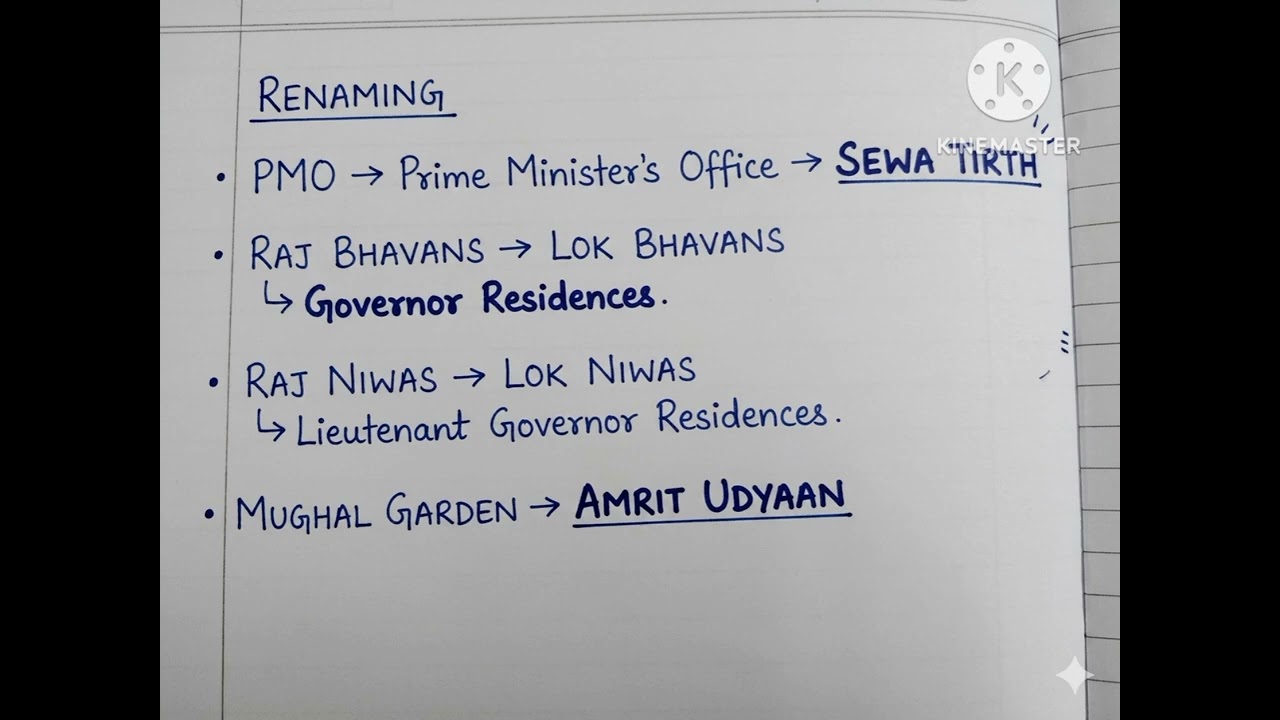 RENAMING
K
KINEMASTER
• PMO → Prime Minister's Office → SEWA TIRTH
• RAJ BHAVANS → LOK BHAVANS
↳ Governor Residences.
• RAJ NIWAS → LOK NIWAS
↳ Lieutenant Governor Residences.
• MUGHAL GARDEN → AMRIT UDYAAN